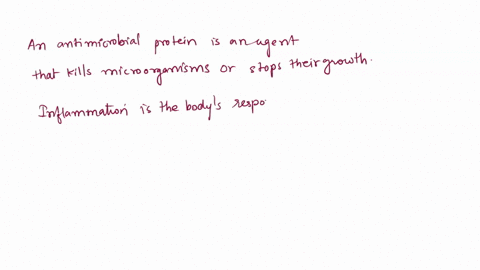 An antimicrobial protein is an agent
that kills microorganisms or stops their growth.
Inflammation is the body's respo